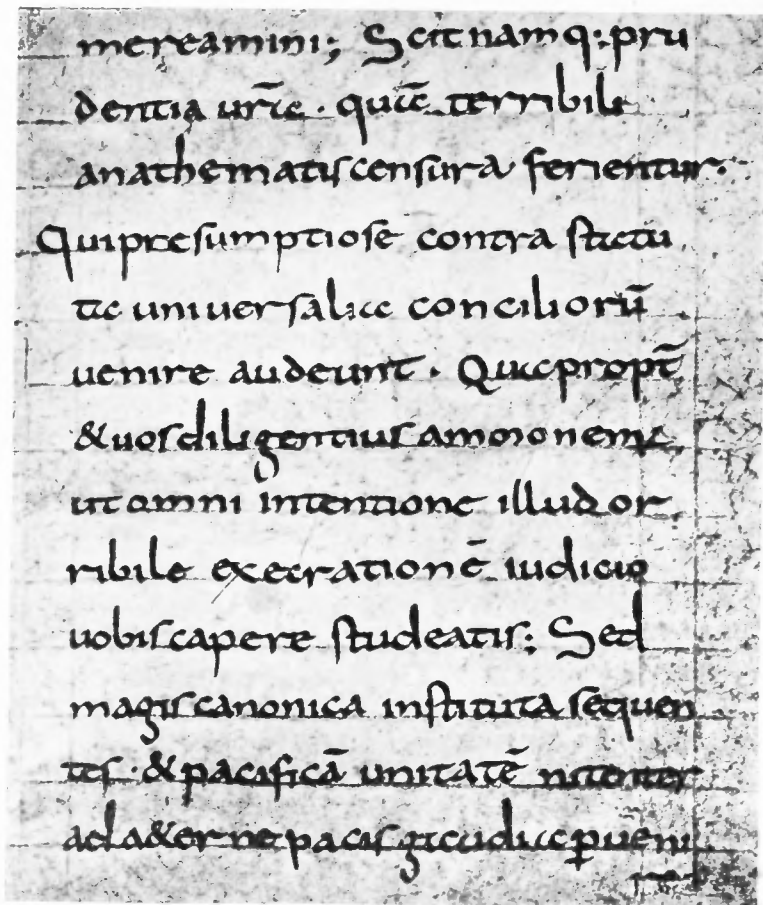 mereamini; Scit namq: pru
dentia urã · quia terribile
anathematis censura ferientur.
Qui presumptiose contra statu
ta uniuersaliũ conciliorũ
uenire audeunt · Quapropt̄
& uos diligentius ammonemus
ut omni intentione illud or
ribile execrationē iudicio
uobis capere studeatis; Sed
magis canonica instituta sequen
tes · & pacificā unitatē nitentes
ad a&erne pacis gaudia p̱ueni